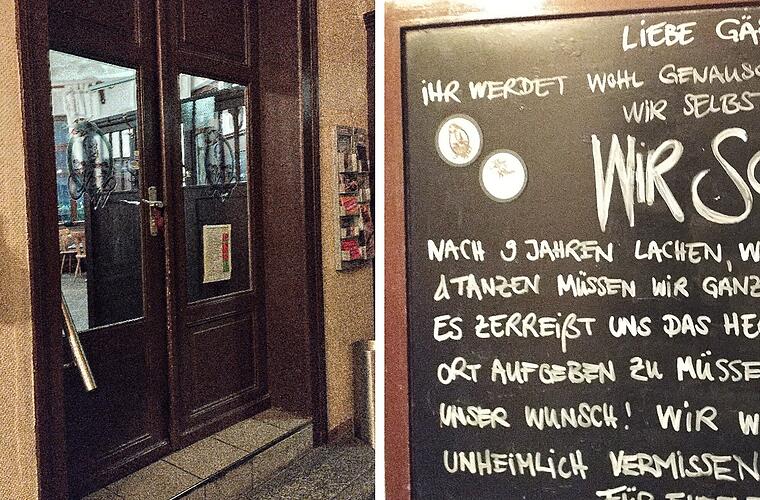 LIEBE GÄ
IHR WERDET WOHL GENAUSO
WIR SELBST
WIR SC
NACH 9 JAHREN LACHEN, W
&TANZEN MÜSSEN WIR GANZ
ES ZERREIßT UNS DAS HE
ORT AUFGEBEN ZU MÜSSE
UNSER WUNSCH! WIR W
UNHEIMLICH VERMISSEN